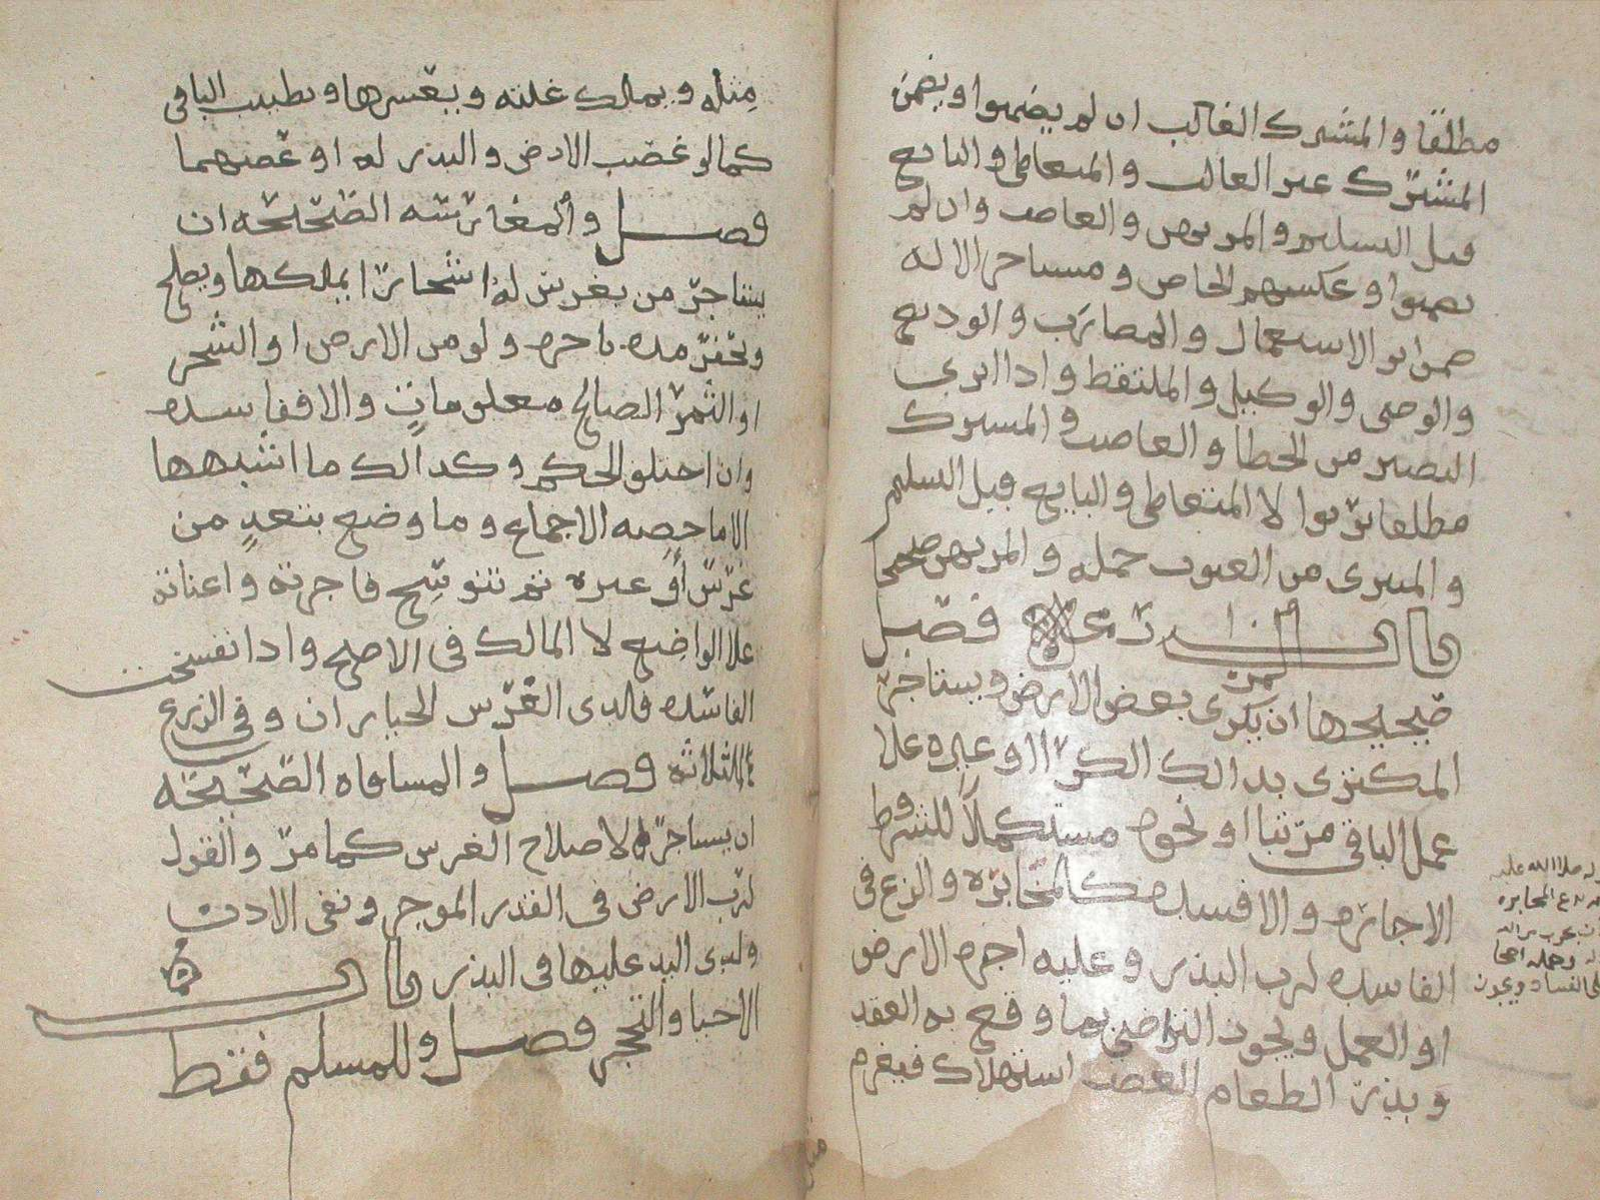 مطلقا والمشترك الغالب ان لم يضمنوا ويضمن
المشترك غير الغالب والمتعاطي والبايع
قبل التسليم والمريهن والغاصب وان لم
يضمنوا وعكسهم الخاص ومستاجر الاله
ضمن اثر الاستعمال والمضارب والوديع
والوصي والوكيل والملتقط واذا ابري
البصير من الخطا والغاصب والمشترك
مطلقا برئوا لا المتعاطي والبايع قبل التسليم
والمبري من العيوب جمله والمرتهن صحيحا
باب المزارعه فصل
صحيحها ان يكري بعض الارض ويستاجر
المكتري بذالك الكرا او غيره علا
عمل الباقي مرتبا او نحوه مستكملا للشروط
الاجاره والا فسدت كالمخابره والزرع في
الفاسده لرب البذر وعليه اجره الارض
او العمل ويجوز التراضي بما وقع به العقد
وبذر الطعام الغصب استهلاك فيغرم
صلا الله عليه
المخابره
على الفساد ويجوز
مثله ويملك غلته ويعشرها ويطيب الباقي
كما لو غصب الارض والبذر له او غصبهما
فصل والمغارسه الصحيحه ان
يستاجر من يغرس له اشجارا يملكها ويصلح
ويحفر مده باجره ولو من الارض او الشجر
او الثمر الصالح معلومات والا ففاسده
وان اختلف الحكم وكذالك ما اشبهها
الا ما خصه الاجماع وما وضع بتعد من
غرس او غيره ثم تنوسخ فاجرته واعناته
علا الواضع لا المالك في الاصح واذا انفسخت
الفاسده فلذي الغرس الخياران وفي الزرع
الثلاثه فصل والمساقاه الصحيحه
ان يستاجره لاصلاح الغرس كما مر والقول
لرب الارض في القدر الموجر ونفي الاذن
ولذي اليد عليها في البذر باب
الاحيا والتحجر فصل وللمسلم فقط